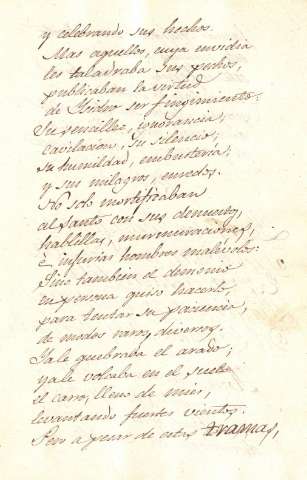 y celebrando sus hechos.
Mas aquellos, cuya envidia
les taladraba sus pechos,
publicaban la virtud
de Isidro ser fingimiento:
Su sencillez, ignorancia;
cavilacion, su silencio;
su humildad, embustería;
y sus milagros, enredos.
No solo mortificaban
al Santo con sus denuestos,
hablillas, murmuraciones,
è injurias hombres malévolos:
Sino tambien el demonio
en persona quiso hacerlo
para tentar su paciencia,
de modos raros, diversos.
Ya le quebraba el arado;
ya le volcaba en el suelo
el carro, lleno de mies,
levantando fuertes vientos.
Pero a pesar de estas tramas,